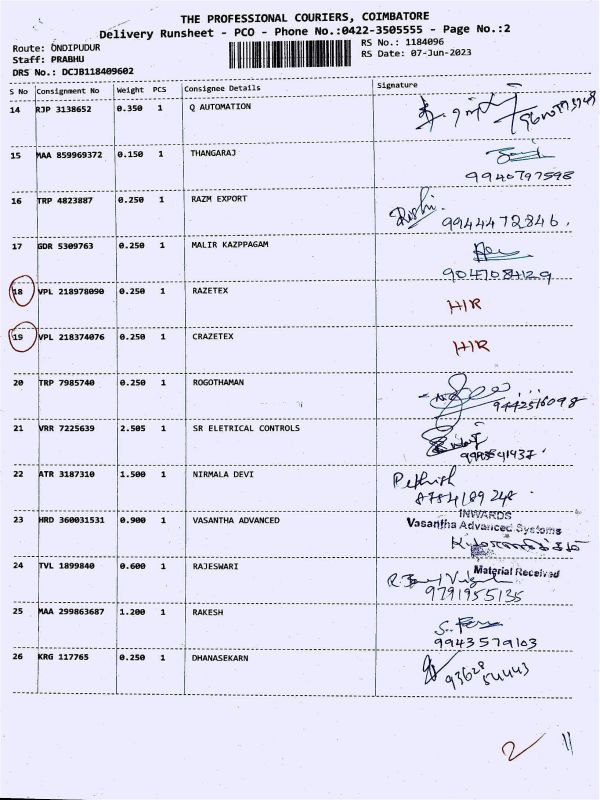 THE PROFESSIONAL COURIERS, COIMBATORE
Delivery Runsheet - PCO - Phone No.:0422-3505555 - Page No.:2
Route: ONDIPUDUR RS No.: 1184096
Staff: PRABHU RS Date: 07-Jun-2023
DRS No.: DCJB118409602
S No Consignment No Weight PCS Consignee Details Signature
14 RJP 3138652 0.350 1 Q AUTOMATION
15 MAA 859969372 0.150 1 THANGARAJ
9940797598
16 TRP 4823887 0.250 1 RAZM EXPORT
Rishi
9944472846.
17 GDR 5309763 0.250 1 MALIR KAZPPAGAM
9047084129
18 VPL 218978090 0.250 1 RAZETEX
HIR
19 VPL 218374076 0.250 1 CRAZETEX
HIR
20 TRP 7985740 0.250 1 ROGOTHAMAN
9442516098
21 VRR 7225639 2.505 1 SR ELETRICAL CONTROLS
22 ATR 3187310 1.500 1 NIRMALA DEVI
8754189248
23 HRD 360031531 0.900 1 VASANTHA ADVANCED
INWARDS
Vasantha Advanced Systems
24 TVL 1899840 0.600 1 RAJESWARI
Material Received
9791955135
25 MAA 299863687 1.200 1 RAKESH
9943579103
26 KRG 117765 0.250 1 DHANASEKARN
93628
54443
2 11